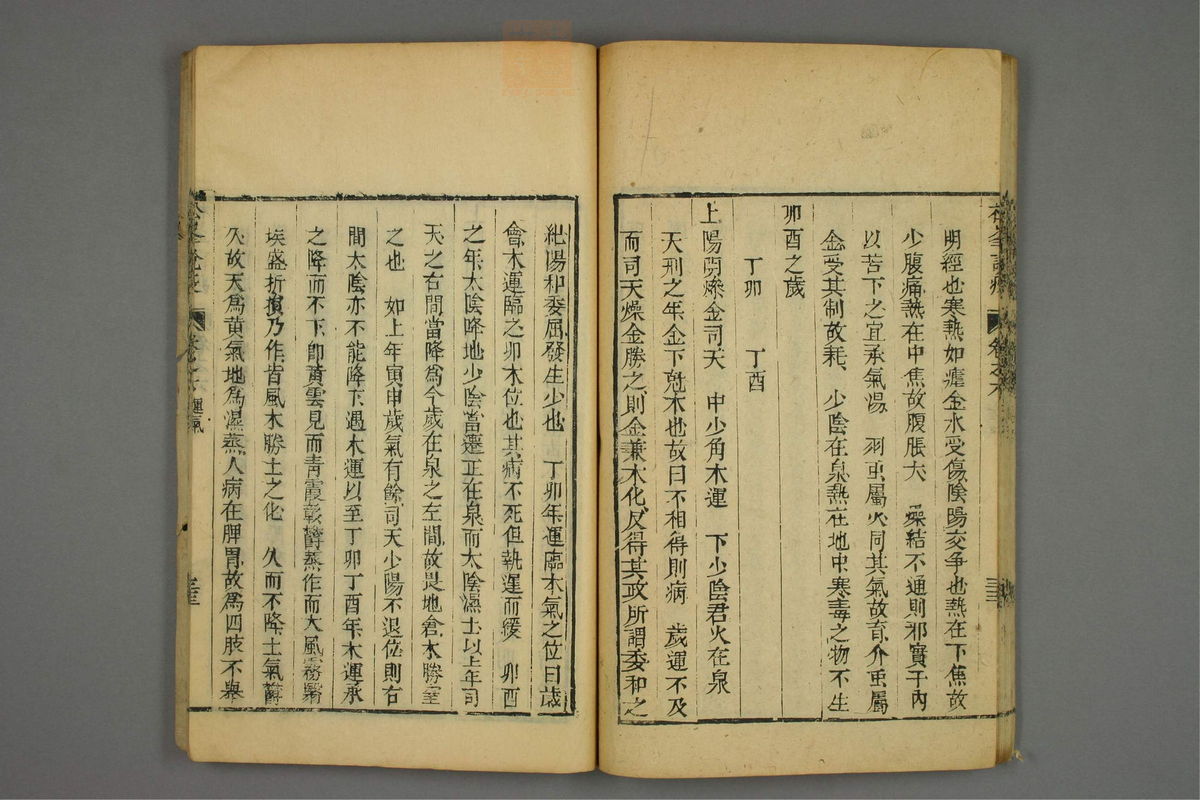 明經也寒熱如瘧金水受傷陰陽交爭也熱在下焦故
少腹痛熱在中焦故腹脹大　燥結不通則邪實于內
以苦下之宜承氣湯　羽虫屬火同其氣故育介虫屬
金受其制故耗　少陰在泉熱在地中寒毒之物不生
卯酉之歲
丁卯　丁酉
上陽明燥金司天　中少角木運　下少陰君火在泉
天刑之年金下尅木也故曰不相得則病　歲運不及
而司天燥金勝之則金兼木化反得其政所謂委和之
紀陽和委屈發生少也　丁卯年運臨木氣之位曰歲
會木運臨之卯木位也其病不死但執遲而緩　卯酉
之年太陰降地少陰當遷正在泉而太陰濕土以上年司
天之右間當降為今歲在泉之左間故畏地倉木勝窒
之也　如上年寅申歲氣有餘司天少陽不退位則右
間太陰亦不能降下遇木運以至丁卯丁酉年木運承
之降而不下卽黃雲見而青霞彰欝蒸作而大風霧翳
埃盛折損乃作皆風木勝土之化　久而不降土氣欝
久故天為黃氣地為濕蒸人病在脾胃故為四肢不舉
卷之六
運氣